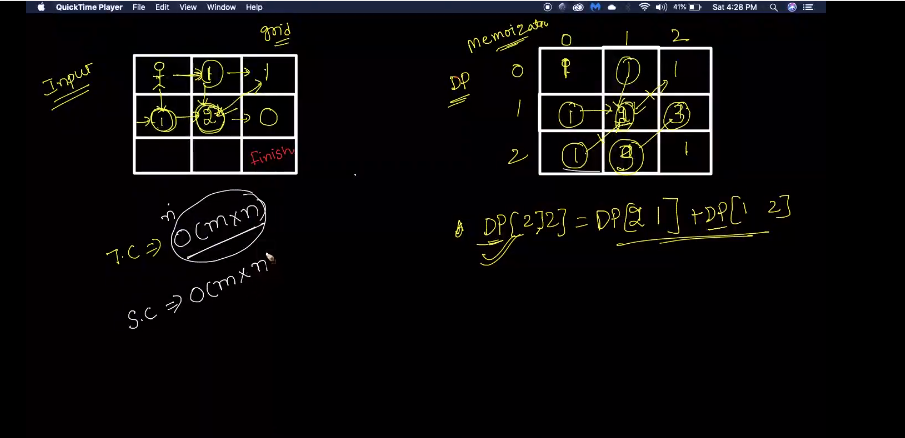 QuickTime Player File Edit View Window Help 41% Sat 4:28 PM
grid
Input
1 1
1 2 0
Finish
T.C => O(m x n)
S.C => O(m x n
Memoization
DP
0 1 2
0 1 1 1
1 1 2 3
2 1 3 1
DP[2,2] = DP[2 1] + DP[1 2]